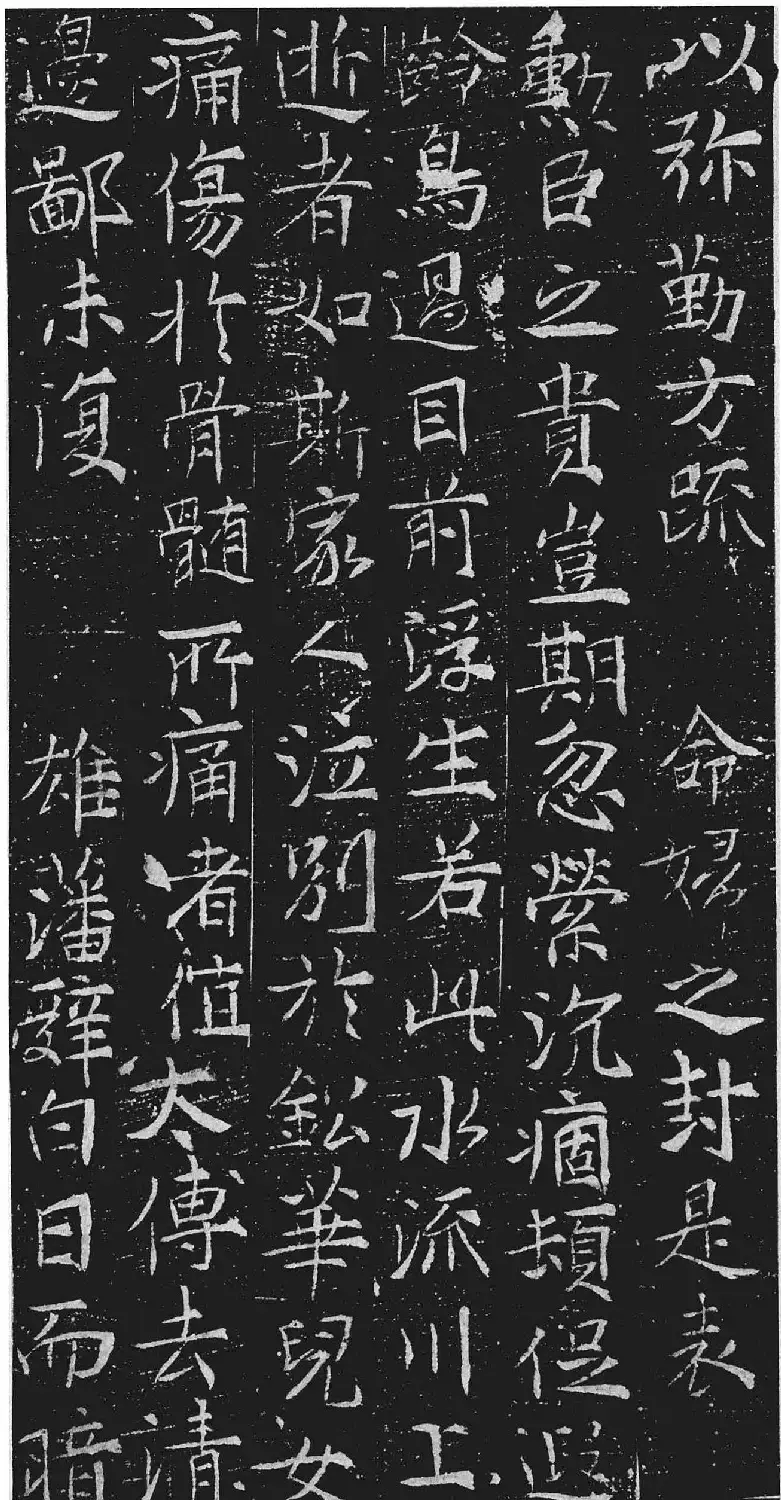 以弥勤方疏 命婦之封是表
勲臣之貴豈期忽縈沉痼頓促遐
齡鳥過目前浮生若此水流川上
逝者如斯家人泣別於鈆華兒女
痛傷於骨髓所痛者值太傅去清
邊鄙未復 雄藩辞白日而暗